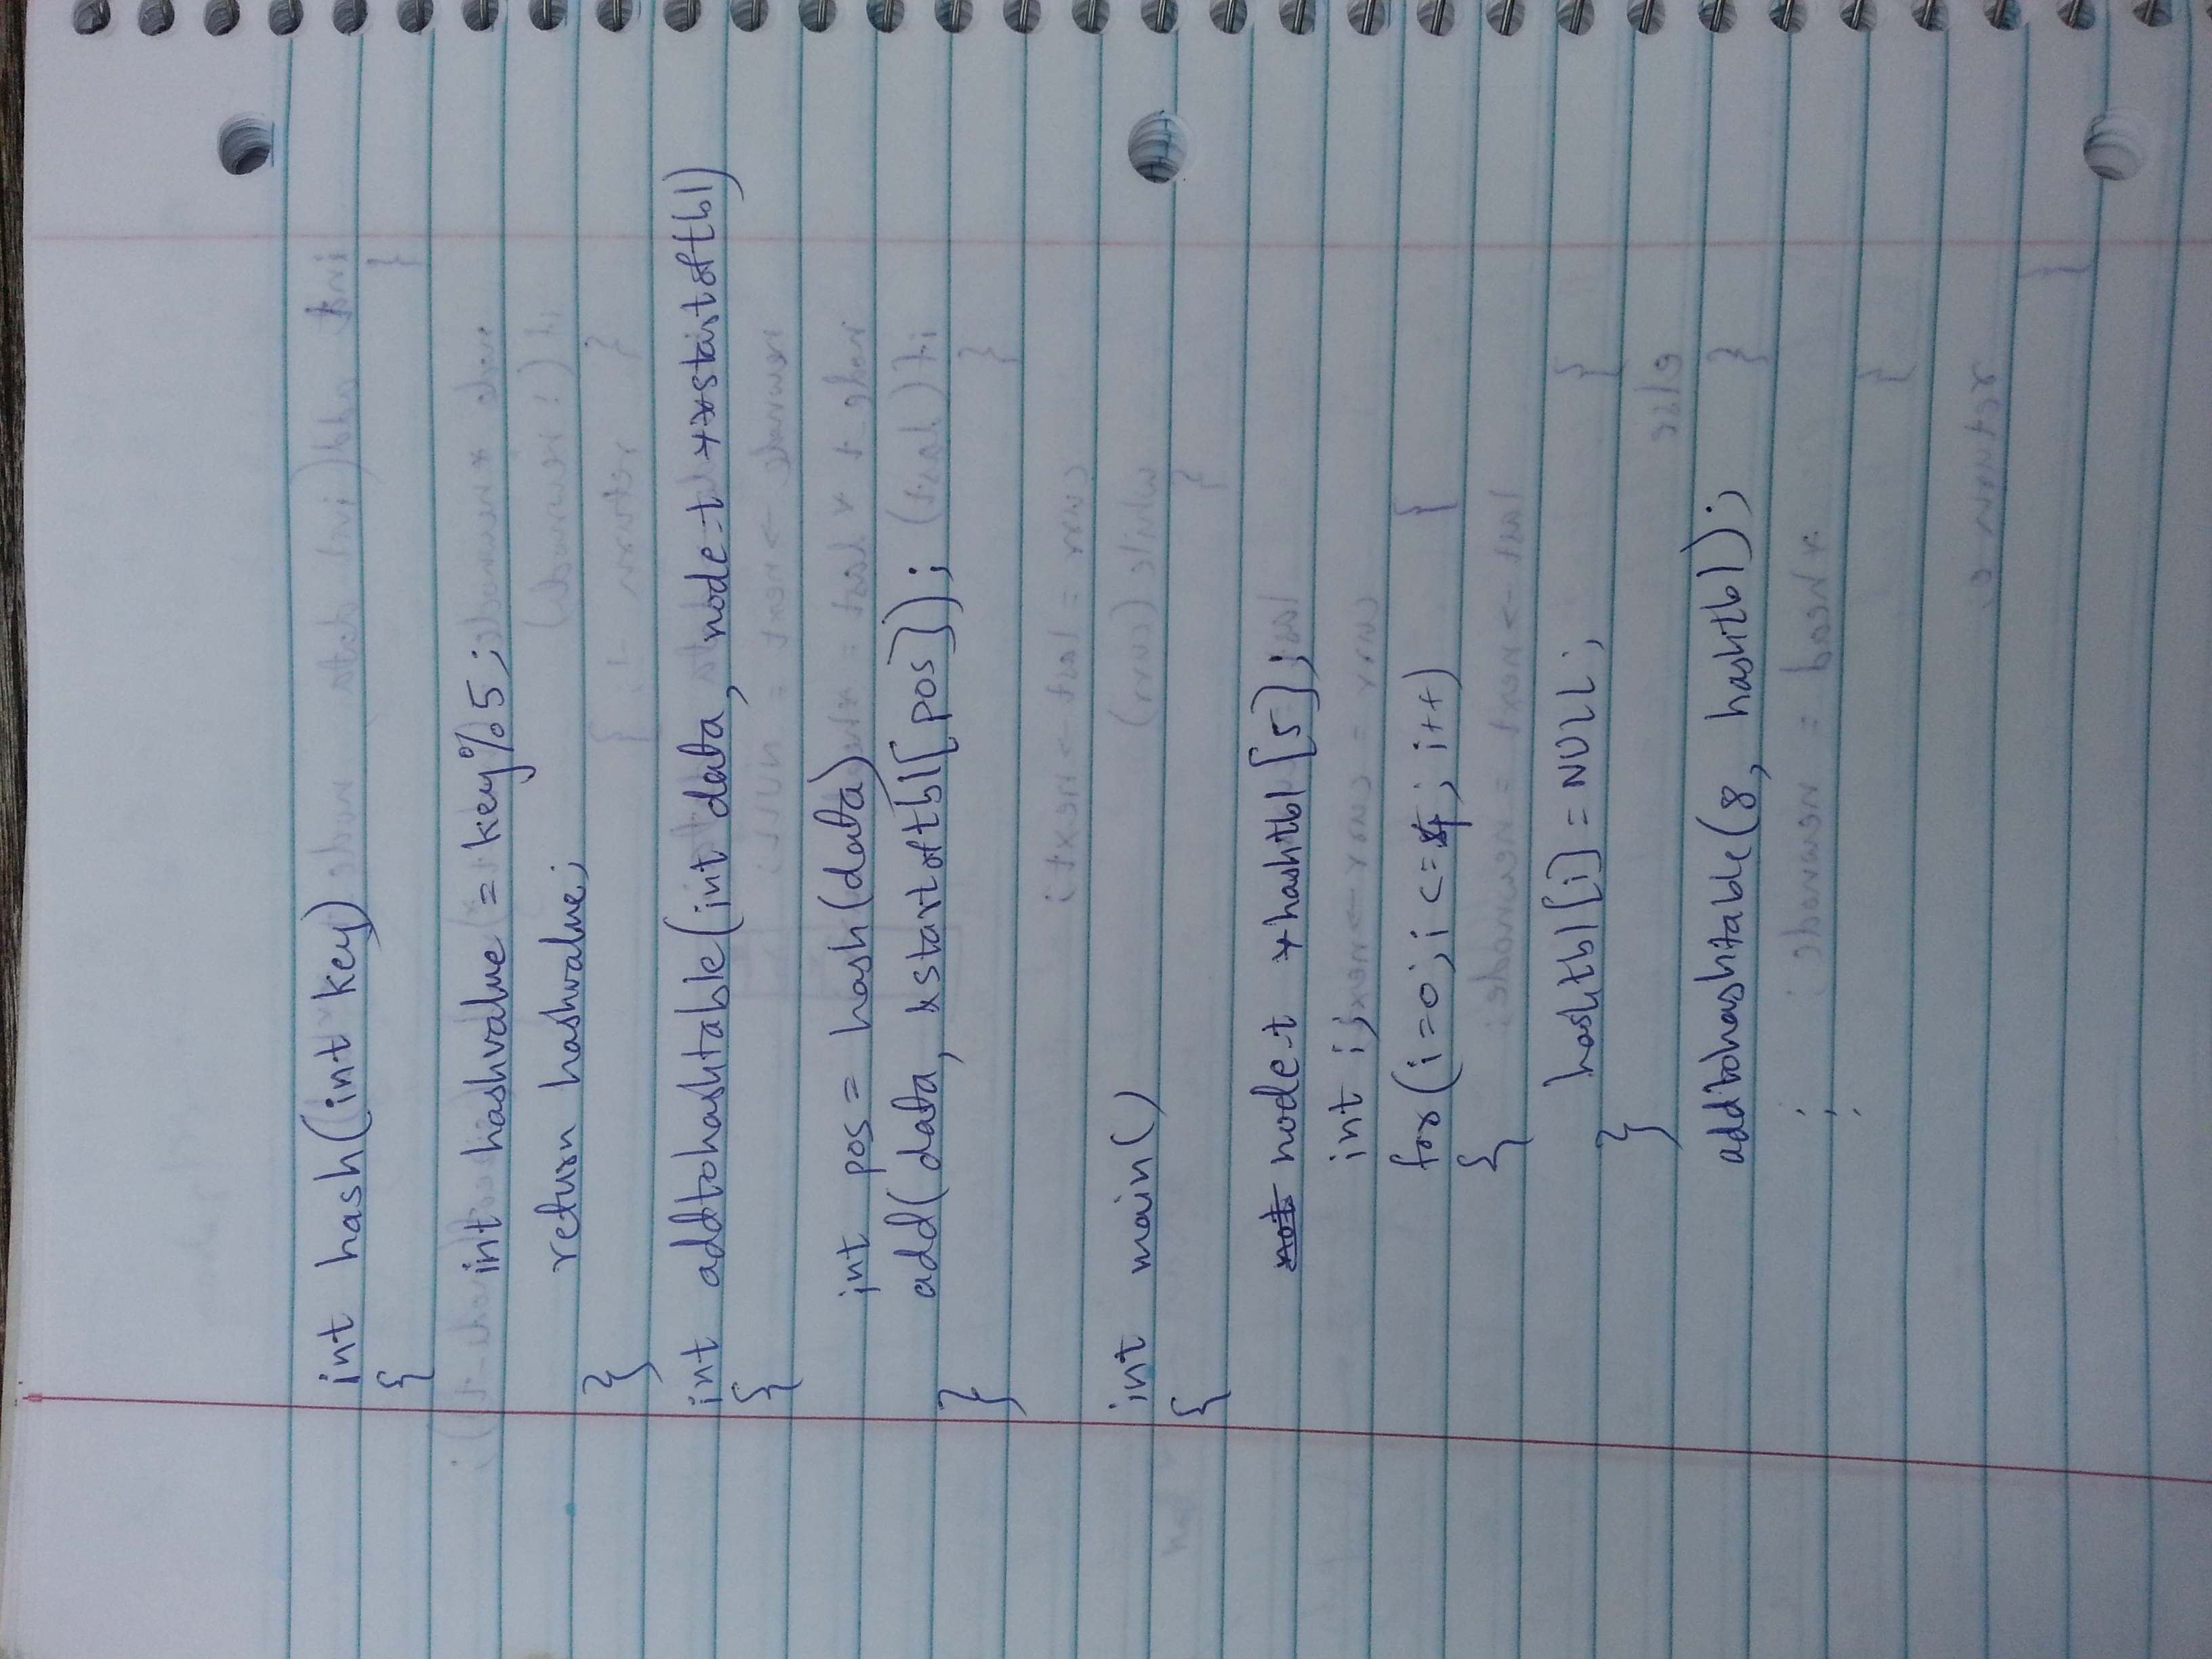 int hash(int key)
{
int hashvalue = key%5;
return hashvalue;
}
int addtohashtable(int data, node_t **startoftbl)
{
int pos = hash(data)
add(data, &startoftbl[pos]);
}
int main()
{
not node_t *hashtbl[5];
int i;
for(i=0;i<=4; i++)
{
hashtbl[i]=NULL;
}
addtohashtable(8, hashtbl);